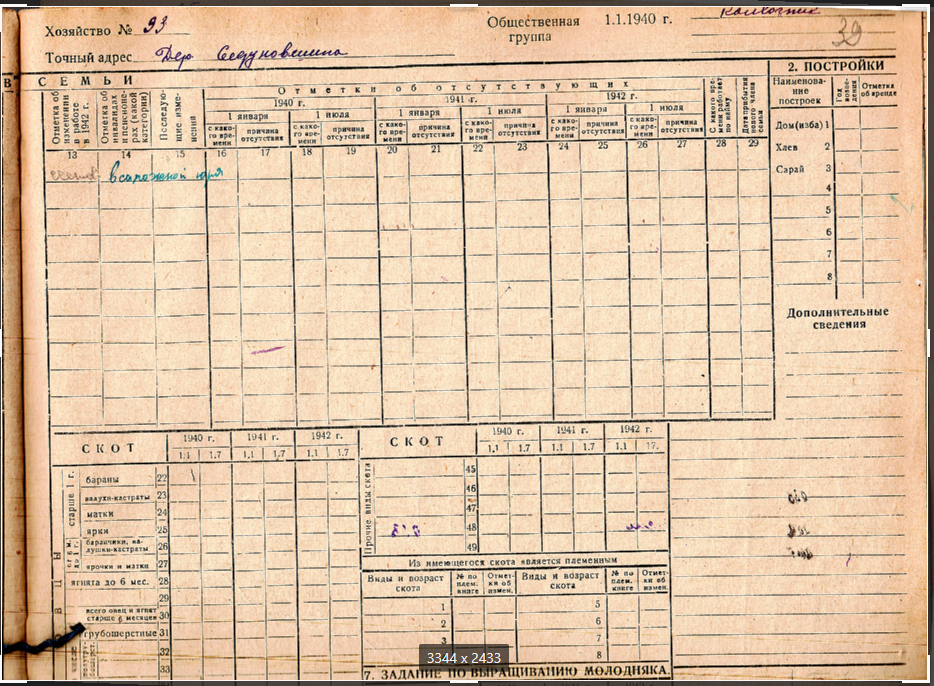 Хозяйство № 93
Общественная группа 1.1.1940 г. колхозник
39
Точный адрес Дер. Седуновщина
СЕМЬИ
Отметка об изменении в работе в 1942 г.
Отметка об инвалидах и пенсионерах (какой категории)
Последующие изменения
Отметки об отсутствующих
1940 г. 1941 г. 1942 г.
1 января 1 июля января 1 июля 1 января 1 июля
с како-го вре-мени причина отсутствия с како-го вре-мени причина отсутствия с како-го вре-мени причина отсутствия с како-го вре-мени причина отсутствия с како-го вре-мени причина отсутствия с како-го вре-мени причина отсутствия
С какого вре-мени работает по найму
Дата прибытия нового члена семьи
13 14 15 16 17 18 19 20 21 22 23 24 25 26 27 28 29
2. ПОСТРОЙКИ
Наименова-ние построек
Год возве-дения
Отметка об аренде
Дом (изба) 1
Хлев 2
Сарай 3
4
5
6
7
8
Дополнительные сведения
СКОТ
1940 г. 1941 г. 1942 г.
1.1 1.7 1.1 1.7 1.1 1.7
старше 1 г.
бараны 22
валухи-кастраты 23
матки 24
ярки 25
баранчики, ва-лушки-кастраты 26
ярочки и матки 27
ягнята до 6 мес. 28
29
всего овец и ягнят старше 6 месяцев 30
грубошерстные 31
32
33
СКОТ
1940 г. 1941 г. 1942 г.
1.1 1.7 1.1 1.7 1.1 17.
Прочие виды скота
45
46
47
48
49
Из имеющегося скота является племенным
Виды и возраст скота № по плем. книге Отмет-ки об измен. Виды и возраст скота № по плем. книге Отмет-ки об измен.
1 5
2 6
3 7
8
3344 x 2433
7. ЗАДАНИЕ ПО ВЫРАЩИВАНИЮ МОЛОДНЯКА.